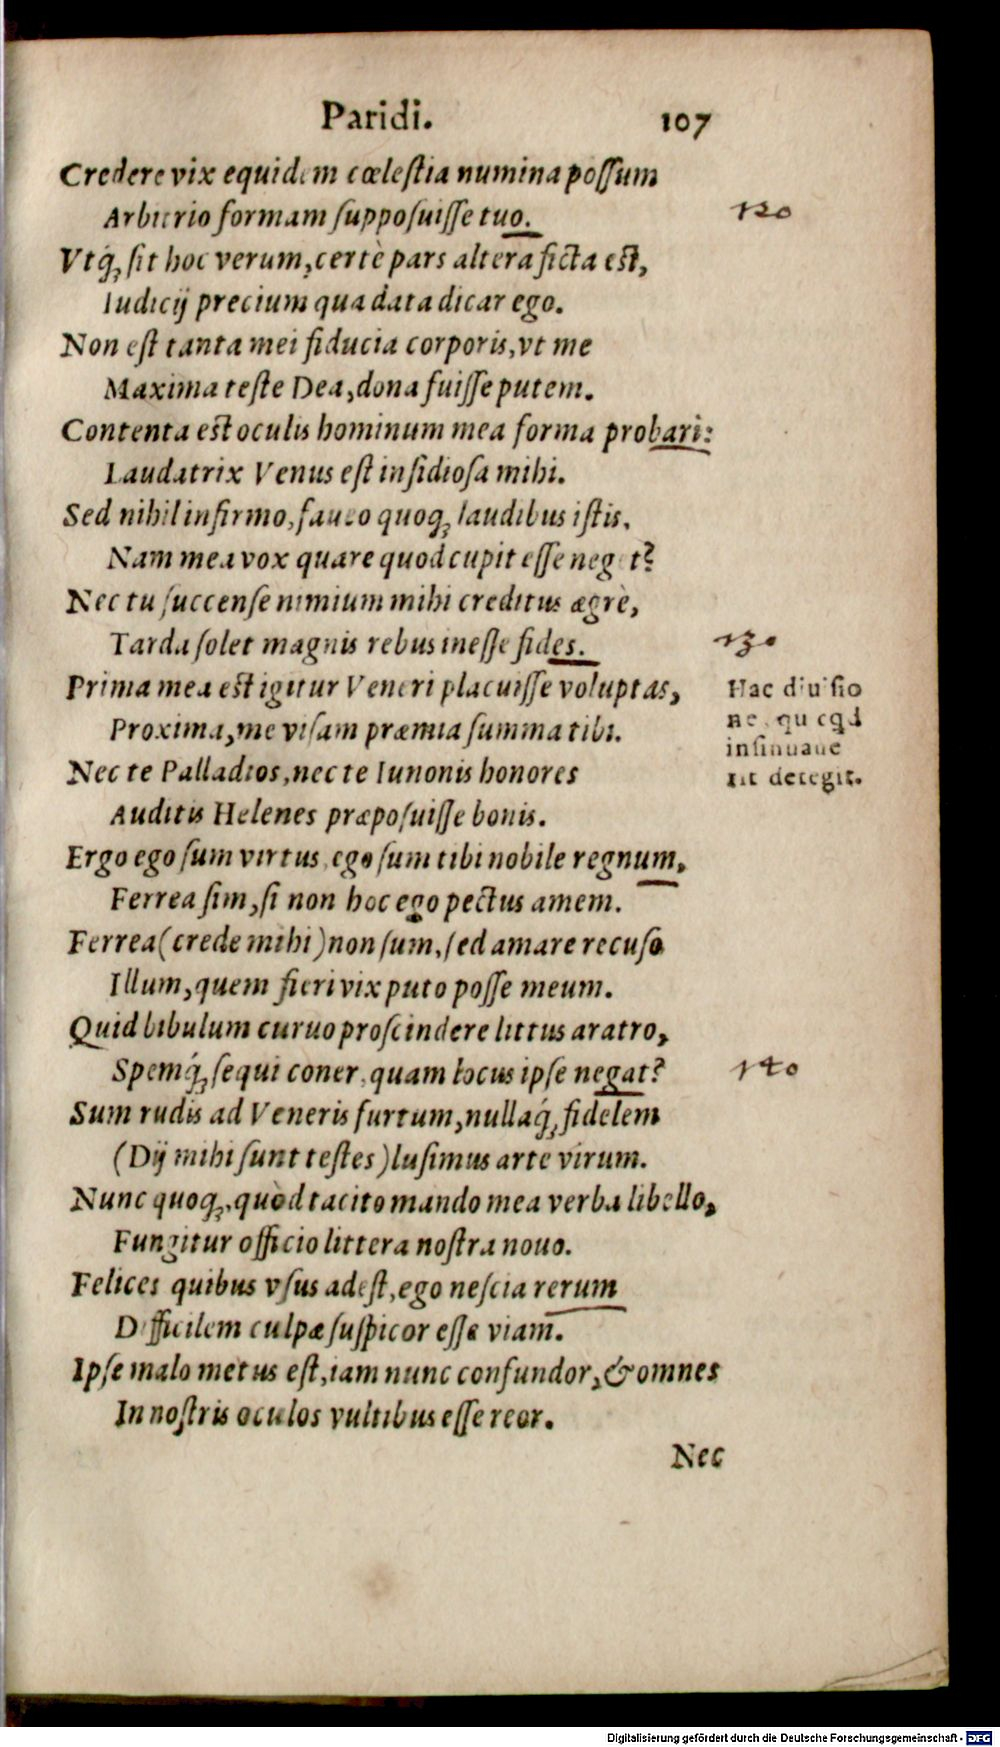 Paridi. 107
Credere vix equidem cœlestia numina possum
Arbitrio formam supposuisse tuo. 120
Vtq́; sit hoc verum, certè pars altera ficta est,
Iudicij precium qua data dicar ego.
Non est tanta mei fiducia corporis, vt me
Maxima teste Dea, dona fuisse putem.
Contenta est oculis hominum mea forma probari:
Laudatrix Venus est insidiosa mihi.
Sed nihil infirmo, faueo quoq; laudibus istis.
Nam mea vox quare quod cupit esse neget?
Nec tu succense nimium mihi creditus ægrè,
Tarda solet magnis rebus inesse fides. 130
Prima mea est igitur Veneri placuisse voluptas,
Proxima, me visam præmia summa tibi.
Nec te Palladios, nec te Iunonis honores
Auditis Helenes præposuisse bonis.
Ergo ego sum virtus, ego sum tibi nobile regnum,
Ferrea sim, si non hoc ego pectus amem.
Ferrea (crede mihi) non sum, sed amare recuso
Illum, quem fieri vix puto posse meum.
Quid bibulum curuo proscindere littus aratro,
Spemq́; sequi coner, quam locus ipse negat? 140
Sum rudis ad Veneris furtum, nullaq́; fidelem
(Dij mihi sunt testes) lusimus arte virum.
Nunc quoq;, quòd tacito mando mea verba libello,
Fungitur officio littera nostra nouo.
Felices quibus vsus adest, ego nescia rerum
Difficilem culpæ suspicor esse viam.
Ipse malo metus est, iam nunc confundor, & omnes
In nostris oculos vultibus esse reor.
Nec
Hac diuisio
insinuaue
rit detegit.
Digitalisierung gefördert durch die Deutsche Forschungsgemeinschaft - DFG